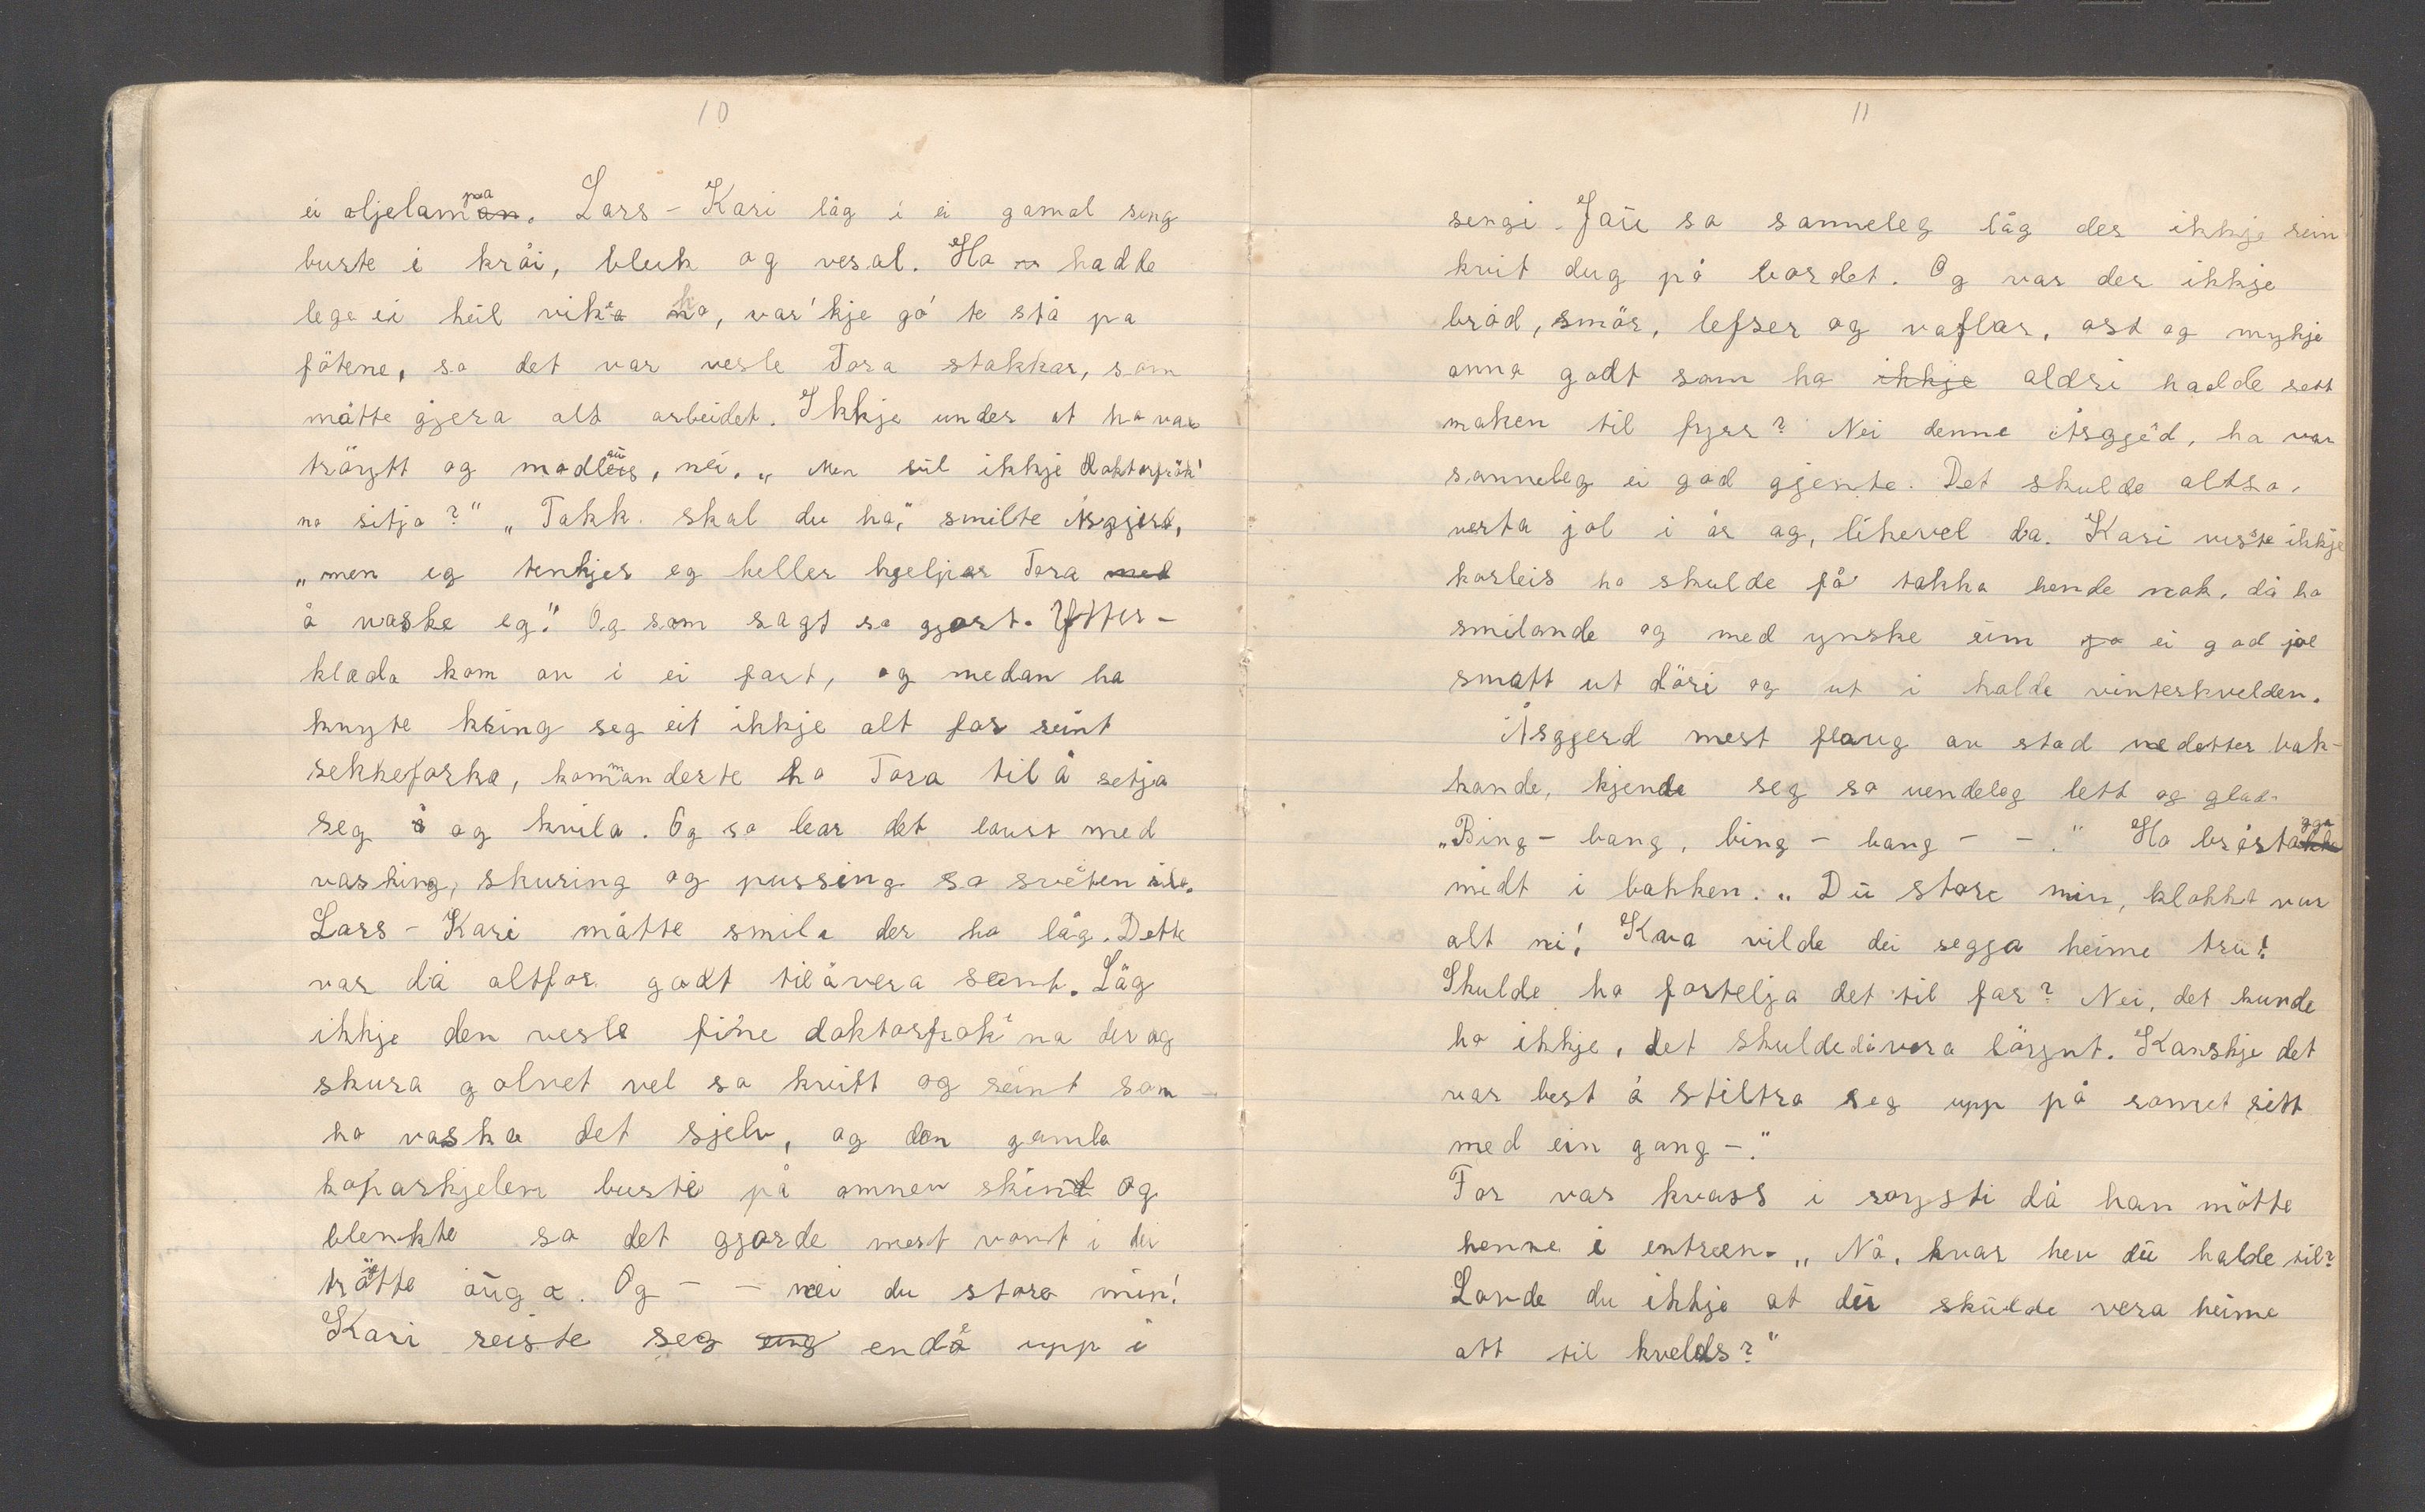 10
ei oljelampa. Lars-Kari låg i ei gamal seng
burte i kråi, bleik og vesal. Ho hadde
lege ei heil vike no, var'kje go' te stå pa
fötene, so det var vesle Tora stakkar, som
måtte gjera alt arbeidet. Ikkje under at ho var
tröytt og modlaus, nei. „Men vil ikkje doktorfrök'
na sitja?" „Takk skal du ha," smilte Åsgjerd,
„men eg tenkjer eg heller hjelper Tora med
å vaske eg." Og som sagt so gjort. Ytter-
klæda kom av i ei fart, og medan ho
knyte kring seg eit ikkje alt for reint
sekkeforkle, kommanderte ho Tora til å setja
seg og kvila. Og so bar det laust med
vasking, skuring og pussing so sveten sila.
Lars-Kari måtte smila der ho låg. Dette
var då altfor godt til å vera sant. Låg
ikkje den vesle fine doktorfrøk'na der og
skura golvet vel so kvitt og reint som
ho vaska det sjølv, og den gamle
koparkjelen burte på omnen skein og
blenkte so det gjorde mest vondt i dei
tröytte augo. Og - - nei du store min!
Kari reiste seg endå upp i
11
sengi. Jau so sanneleg låg der ikkje rein
kvit dug på bordet. Og var der ikkje
bröd, smör, lefser og vaflar, ost og mykje
anna godt som ho ikkje aldri hadde sett
maken til fyrr? Nei denne Åsgjerd, ho var
sanneleg ei god gjente. Det skulde altso
verta jol i år og, likevel da. Kari visste ikkje
korleis ho skulde få takka hende nok, då ho
smilande og med ynske um ei god jol
smatt ut döri og ut i kalde vinterkvelden.
Åsgjerd mest flaug av stad nedetter bak-
kande, kjende seg so uendeleg lett og glad.
„Bing-bang, bing-bang - -." Ho bråstogga
midt i bakken. „Du store min, klokka var
alt ni! Kva vilde dei segja heime tru!
Skulde ho fortelja det til far? Nei, det kunde
ho ikkje, det skulde då vera löynt. Kanskje det
var best å stiltra seg upp på romet sitt
med ein gong-."
Far var kvass i röysti då han mötte
henne i entreen. „Nå, kvar hev du halde til?
Lovde du ikkje at du skulde vera heime
att til kvelds?"